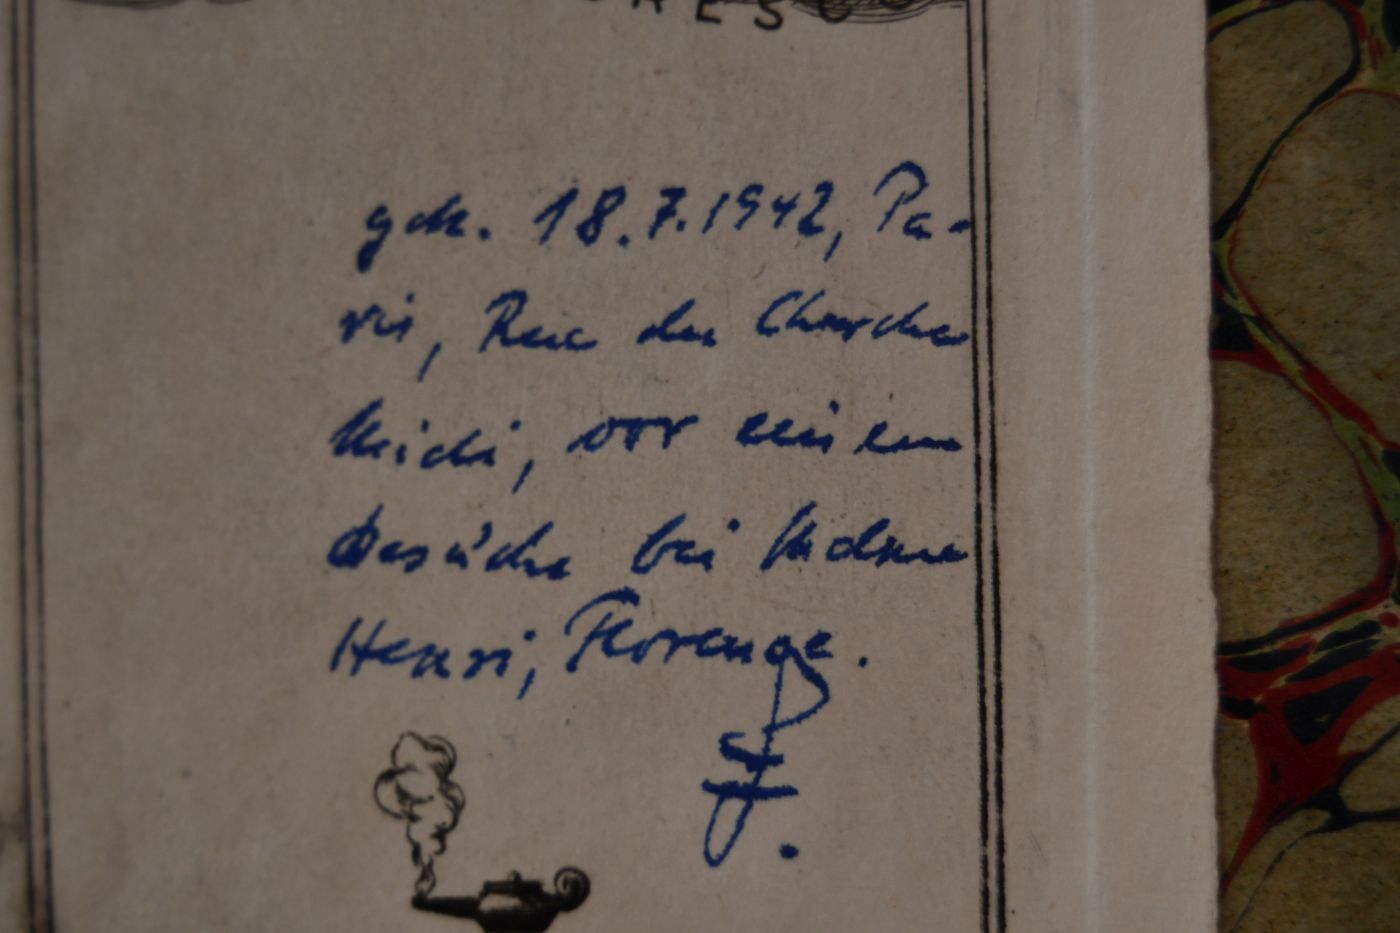 RES
gek. 18.7.1942, Pa-
ris, Rue du Cherche
Midi, vor einem
Besuche bei
Henri, Florence.
J.